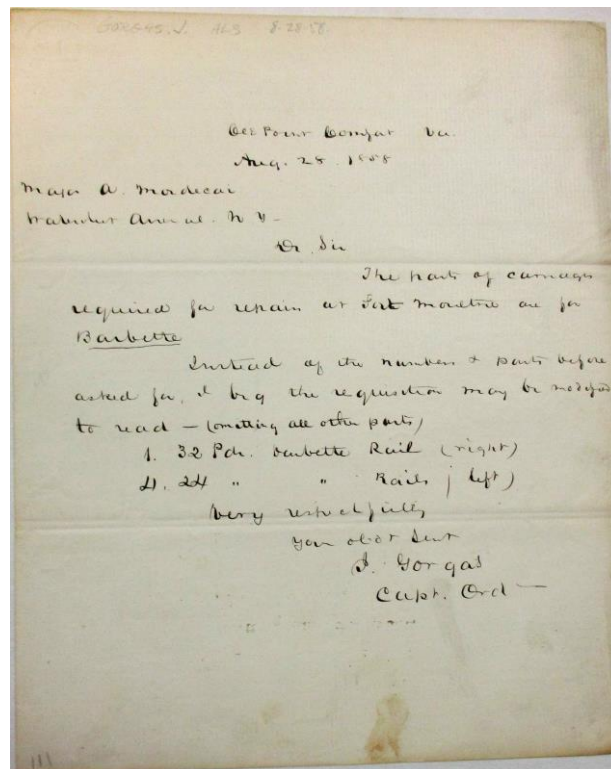 GORGAS, J. ALS 8-28-58.
Old Point Comfort Va.
Aug. 28. 1858
Major A. Mordecai
Watervliet Arsenal. N Y-
Dr. Sir
The parts of carriages
required for repairs at Fort Moultrie are for
Barbette
Instead of the numbers & parts before
asked for, I beg the requisition may be modified
to read - (omitting all other parts)
1. 32 Pdr. Barbette Rail (right)
4. 24 " " Rails ( left )
Very respectfully
Your obdt Servt
J. Gorgas
Capt. Ord